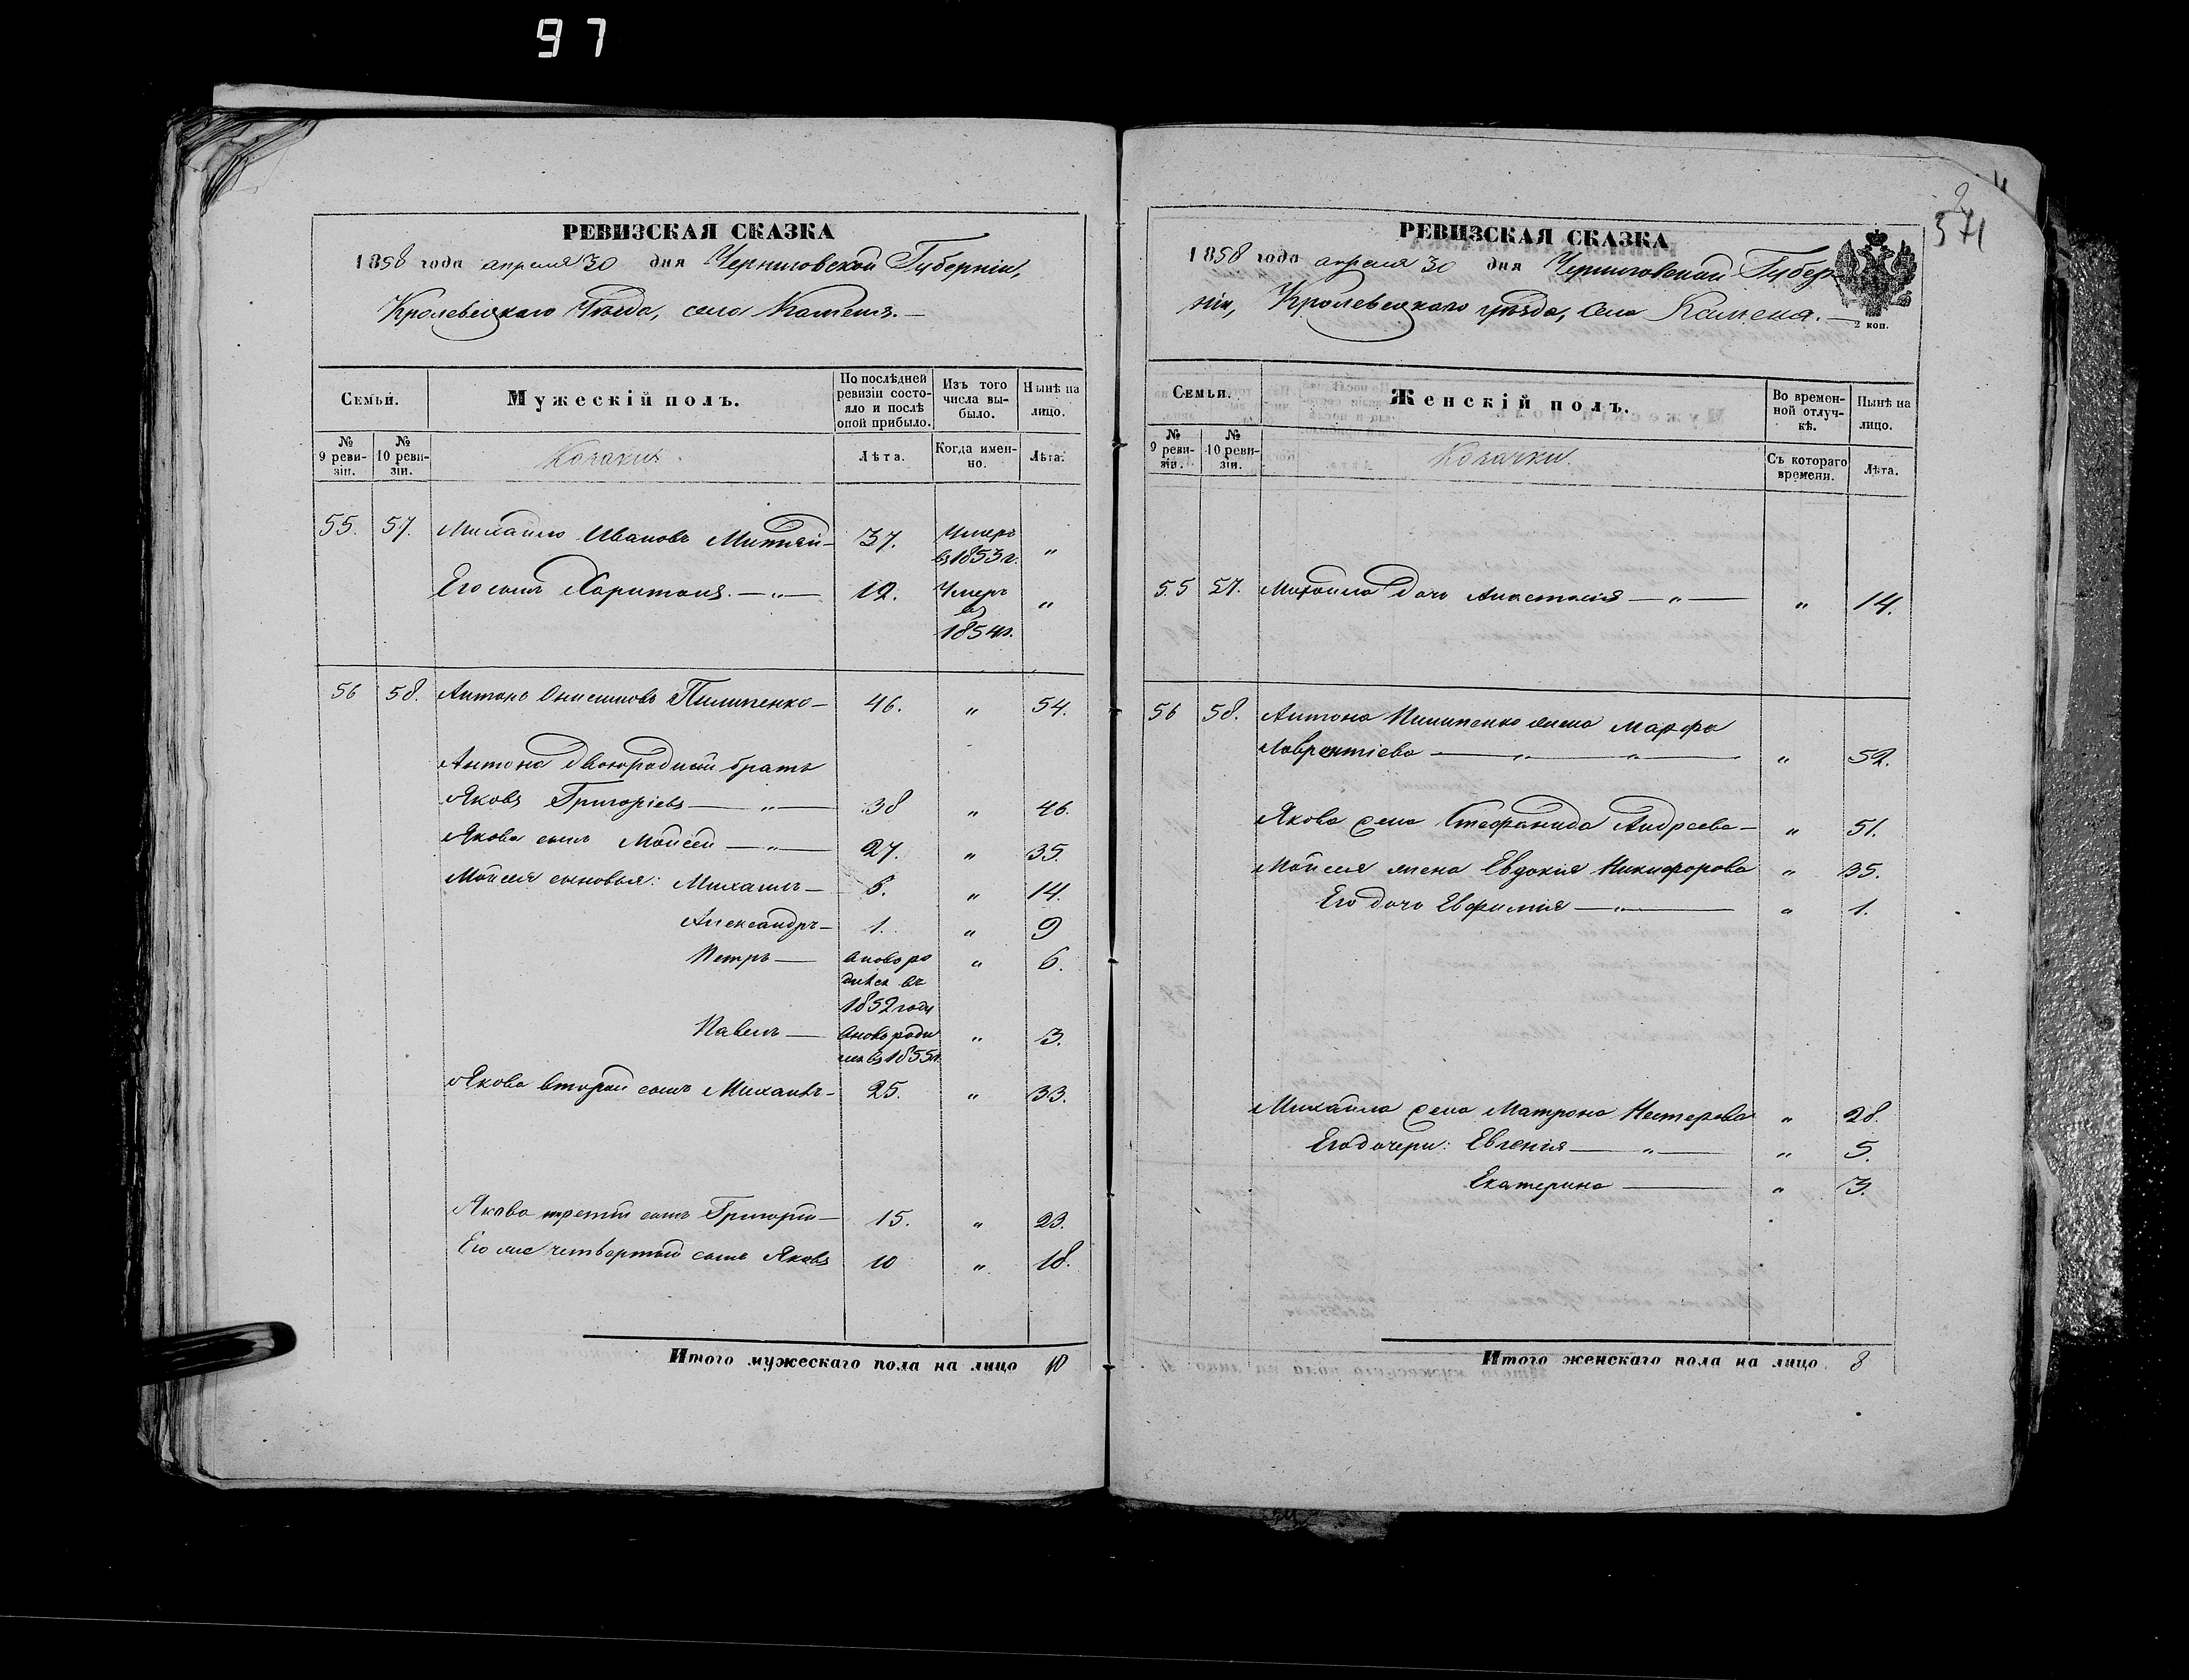 97
РЕВИЗСКАЯ СКАЗКА
1858 года апреля 30 дня Черниговской Губерніи,
Кролевецкаго Уѣзда, села Каменя.—
Семьи.
Мужескій полъ.
По послѣдней ревизіи состояло и послѣ оной прибыло.
Изъ того числа выбыло.
Нынѣ на лицо.
№ 9 ревизіи.
№ 10 ревизіи.
Козаки.
Лѣта.
Когда именно.
Лѣта.
55. 57. Михайло Ивановъ 37. Умеръ въ 1853 г. "
Его сынъ Харитонъ. — " — 12. Умеръ въ 1854 г. "
56 58. Антонъ Онисимовъ Пилипенко — 46. " 54.
Антона двоюродный братъ
Яковъ Григоріевъ — " — 38 " 46.
Якова сынъ Мойсей — " — 27. " 35.
Мойсея сыновья: Михаилъ — 6. " 14.
Александръ — 1. " 9
Петръ — вновь родился въ 1852 году " 6.
Павелъ — вновь родился въ 1855 г. " 3.
Якова второй сынъ Михаилъ — 25. " 33.
Якова третій сынъ Григорій — 15. " 23.
Его же четвертый сынъ Яковъ 10 " 18.
Итого мужескаго пола на лицо 10
571
РЕВИЗСКАЯ СКАЗКА
1858 года апреля 30 дня Черниговской Губер
ніи, Кролевецкаго уѣзда, села Каменя.—
2 коп.
Семьи.
Женскій полъ.
Во временной отлучкѣ.
Нынѣ на лицо.
№ 9 ревизіи.
№ 10 ревизіи.
Козачки.
Съ котораго времени.
Лѣта.
55 57. Михайла дочь Анастасія — " — " 14.
56 58. Антона Пилипенко жена Марфа
Лаврентіева — " — " — " 52.
Якова жена Стефанида Андреева — " 51.
Мойсея жена Евдокія Никифорова " 35.
Его дочь Евфимія — " — " 1.
Михайла жена Матрона Нестерова " 28.
Его дочери: Евгенія — " — " 5.
Екатерина — " 3.
Итого женскаго пола на лицо 8